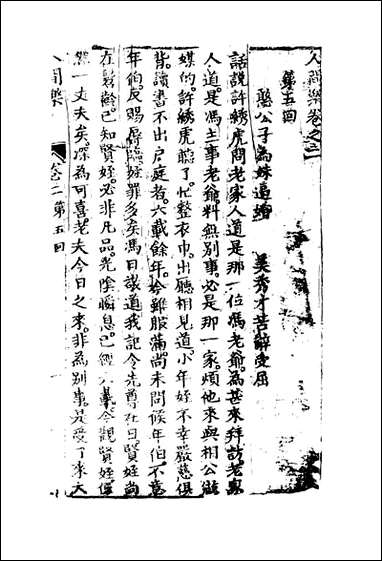 人間樂卷之二
第五回
憨公子為妹逼婚　美秀才苦辭受屈
話說許綉虎問老家人道是那一位馮老爺為甚來拜訪老家
人道是馮主事老爺料無別事必是那一家煩他來與相公做
媒的許綉虎聽了忙整衣巾出廳相見道小年姪不幸嚴慈俱
背讀書不出戶庭者六載餘年於雖服滿尚未問候年伯不意
年伯反賜屈臨姪罪多矣馮日敬道我記令先尊在日賢姪尚
在髫齡已知賢姪必非凡品光陰瞬息已經六載今觀賢姪偉
然一丈夫矣深為可喜老夫今日之來非為別事是受了來大
人間樂　卷二第五回